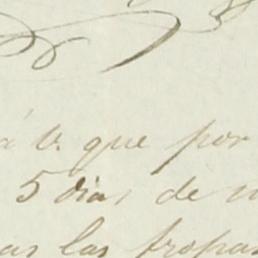 á V. que por
5 dias de
las tropas